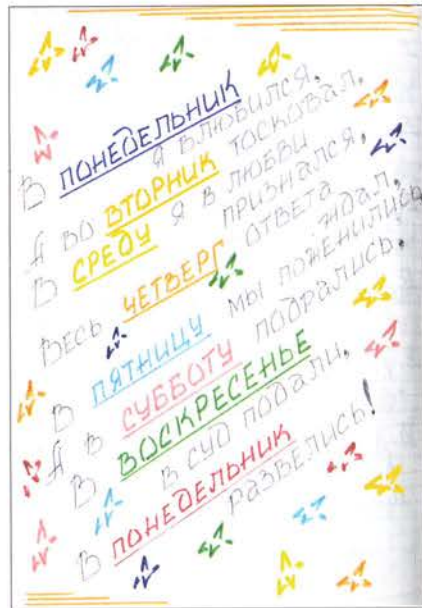 В ПОНЕДЕЛЬНИК
я влюбился,
А во ВТОРНИК тосковал,
В СРЕДУ я в любви
признался,
Весь ЧЕТВЕРГ ответа
ждал,
В ПЯТНИЦУ мы поженились,
А в СУББОТУ подрались.
В ВОСКРЕСЕНЬЕ
в суд подали,
В ПОНЕДЕЛЬНИК
развелись!